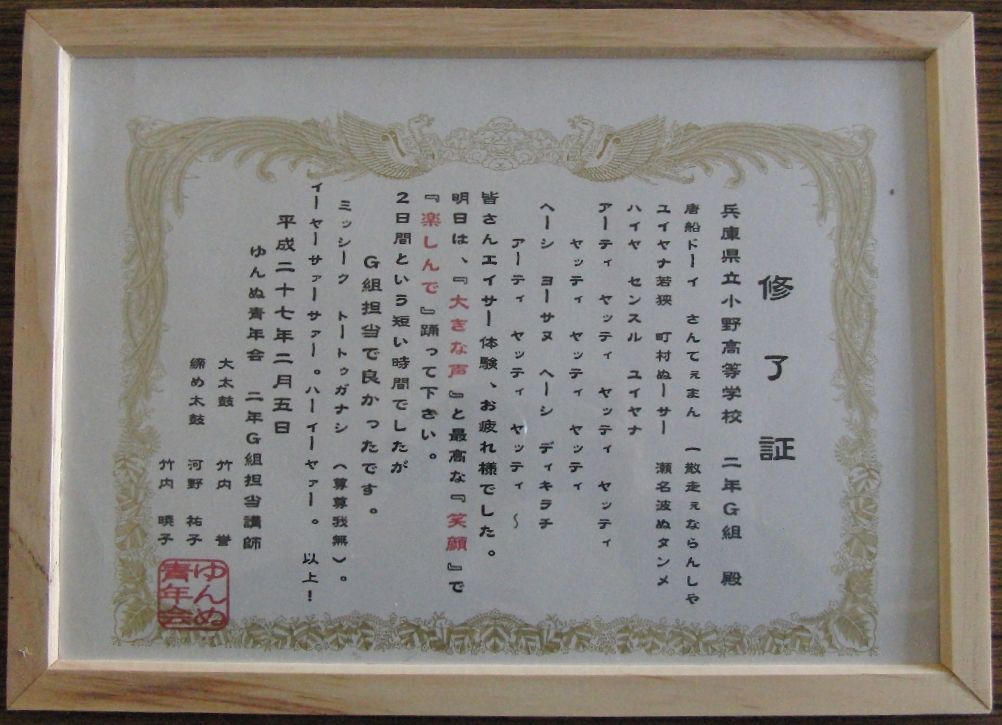 修了証
兵庫県立小野高等学校 二年G組 殿
唐船ドーイ さんてぇまん 一散走ぇならんしや
ユイヤナ若狭 町村ぬーサー 瀬名波ぬタンメ
ハイヤ センスル ユイヤナ
アーティ ヤッティ ヤッティ ヤッティ
ヤッティ ヤッティ ヤッティ
ヘーシ ヨーサヌ ヘーシ ディキラチ
アーティ ヤッティ ヤッティ 〜
皆さんエイサー体験、お疲れ様でした。
明日は、『大きな声』と最高な『笑顔』で
『楽しんで』踊って下さい。
2日間という短い時間でしたが
G組担当で良かったです。
ミッシーク トートゥガナシ (尊尊我無)。
イーヤーサァーサァー。ハーイーヤァー。 以上!
平成二十七年二月五日
ゆんぬ青年会 二年G組担当講師
大太鼓 竹内 誉
締め太鼓 河野 祐子
竹内 暁子
ゆんぬ
青年会